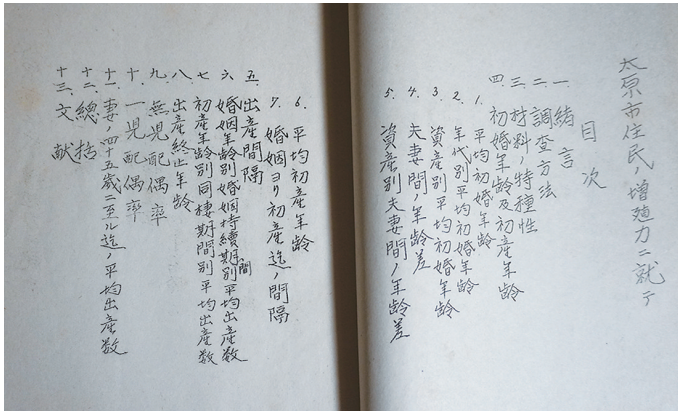 太原市住民ノ増殖力ニ就テ
目次
一、緒言
二、調査方法
三、材料ノ特種性
四、初婚年齢及初産年齢
1. 平均初婚年齢
2. 年代別平均初婚年齢
3. 資産別平均初婚年齢
4. 夫妻間ノ年齢差
5. 資産別夫妻間ノ年齢差
6. 平均初産年齢
7. 婚姻ヨリ初産迄ノ間隔
五、出産間隔
六、婚姻年齢別婚姻持續期間別平均出産数
七、初産年齢別同棲期間別平均出産数
八、出産終止年齢
九、無児配偶率
十、一児配偶率
十一、妻ノ四十五歳ニ至ル迄ノ平均出産数
十二、總括
十三、文献